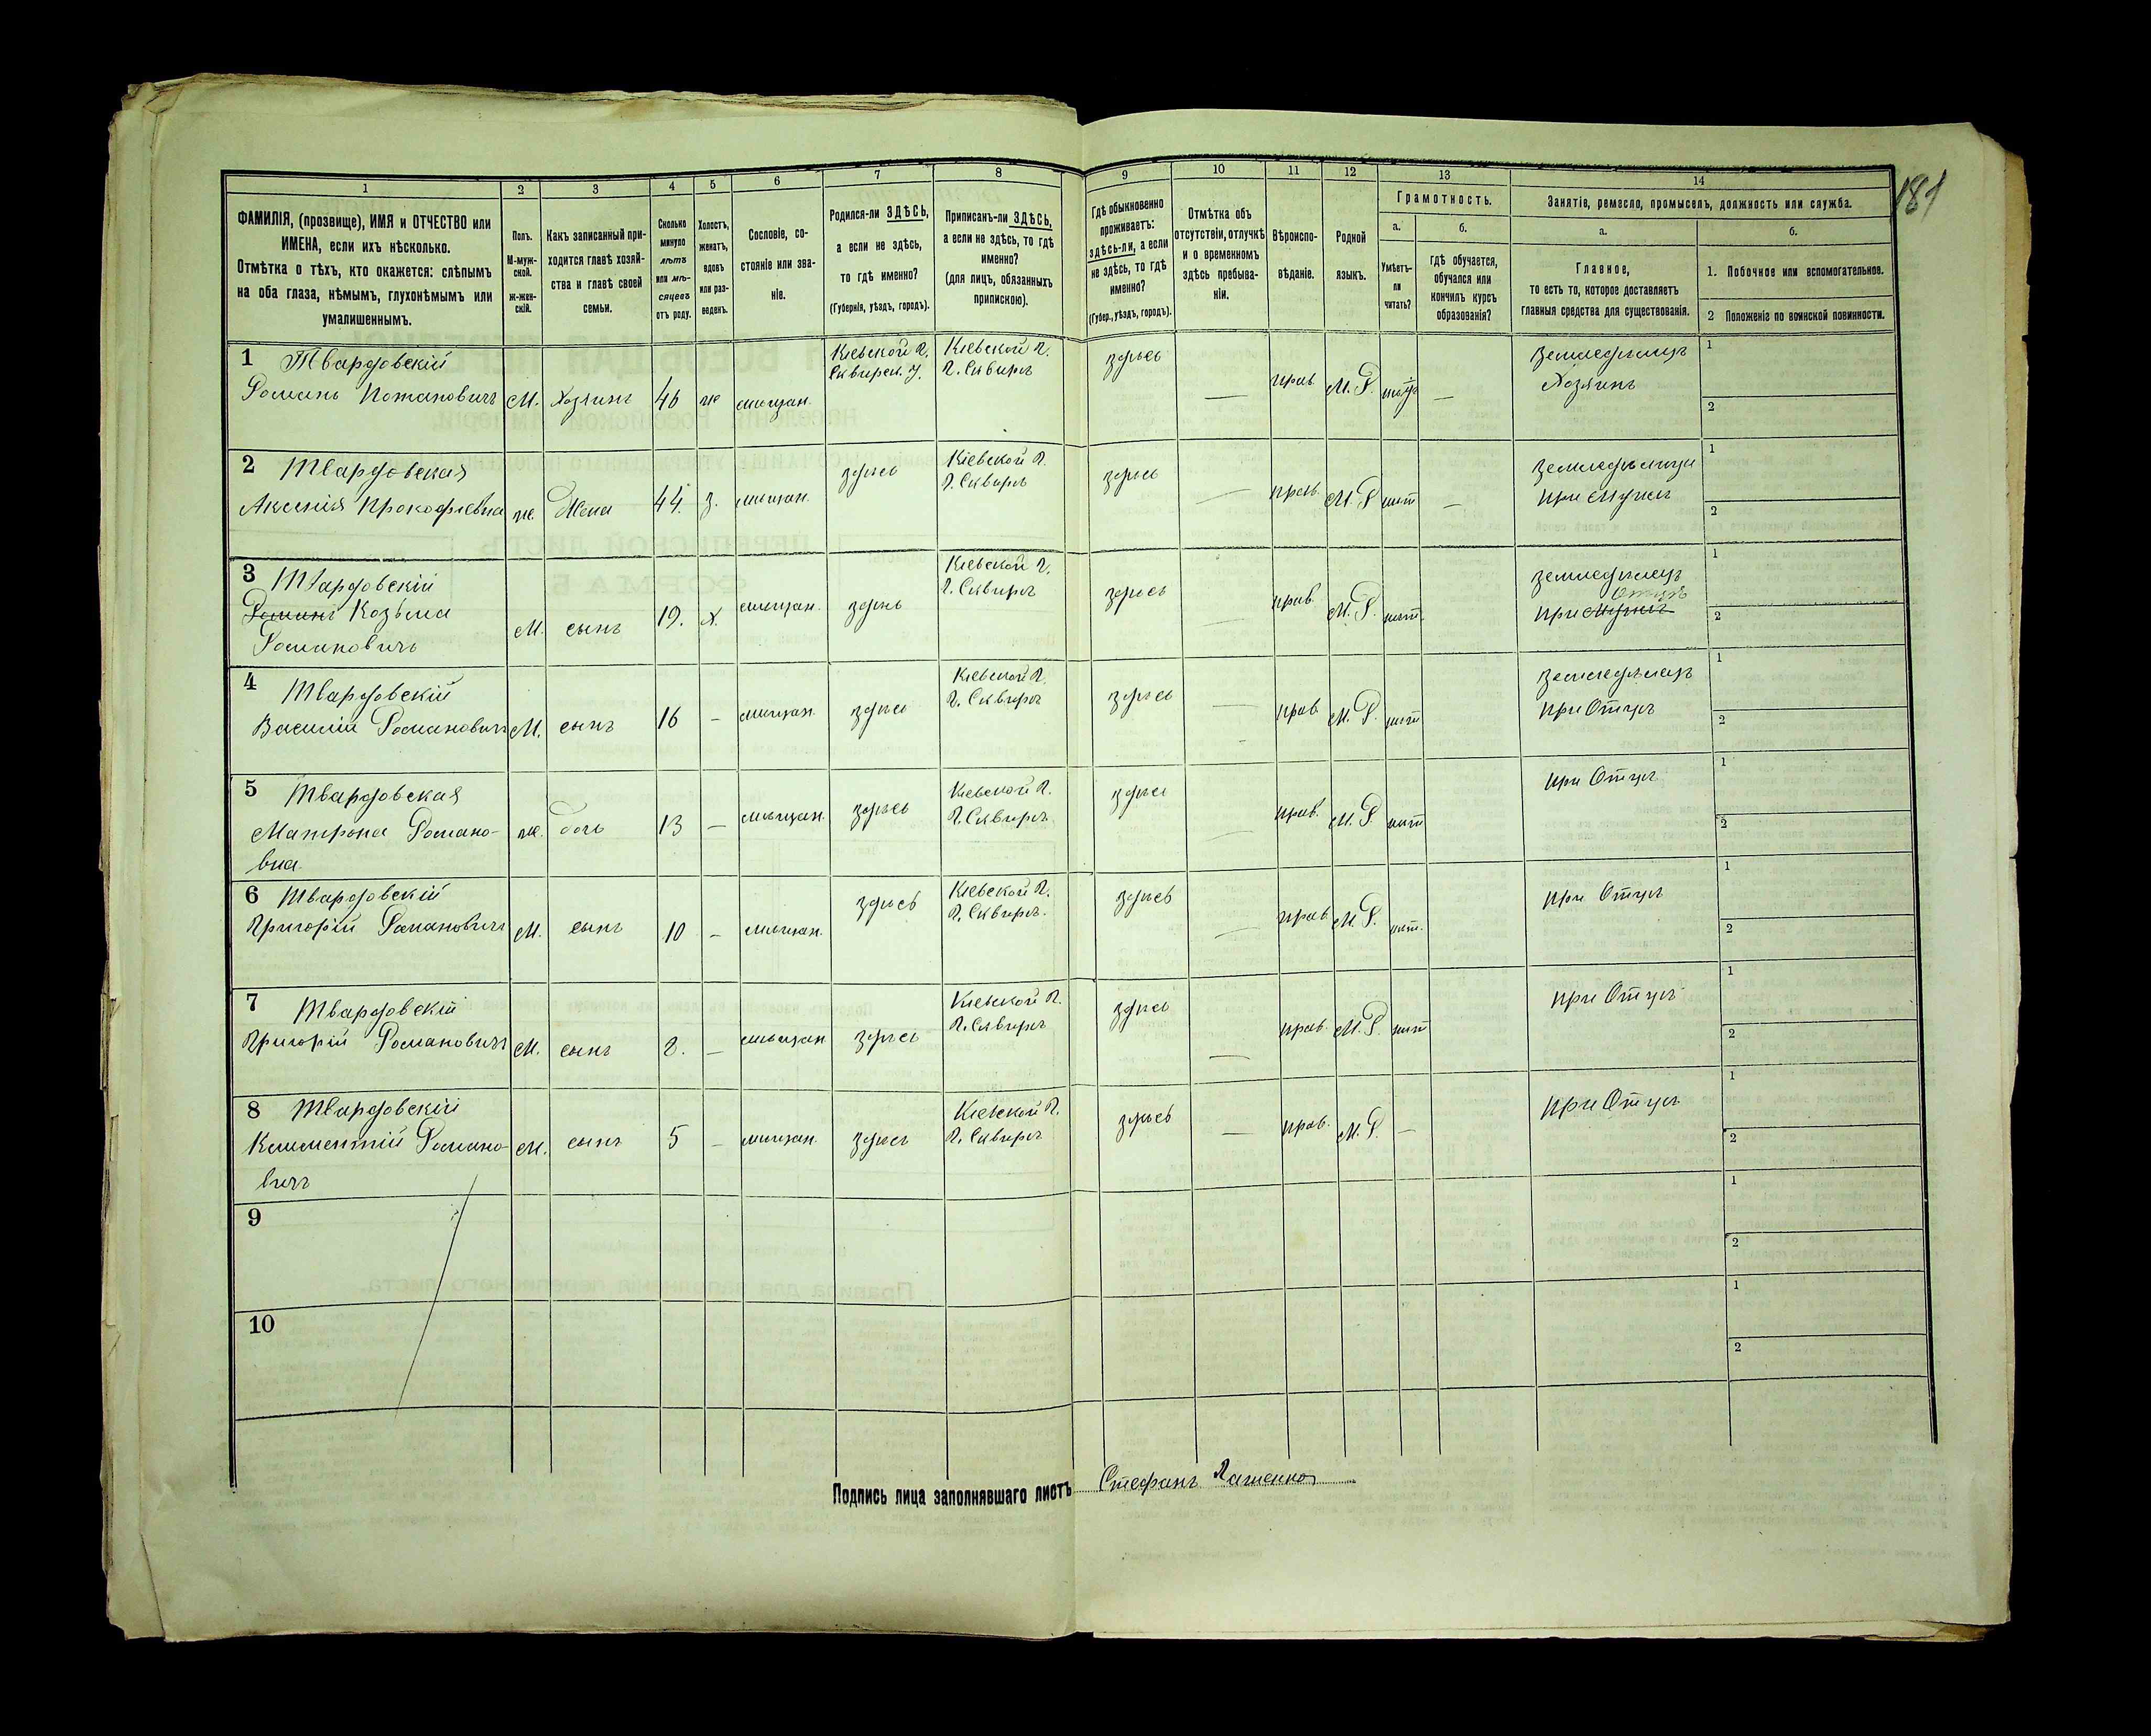 181
1 2 3 4 5 6 7 8 9 10 11 12 13 14
ФАМИЛІЯ, (прозвище), ИМЯ и ОТЧЕСТВО или
ИМЕНА, если ихъ нѣсколько.
Отмѣтка о тѣхъ, кто окажется: слѣпымъ
на оба глаза, нѣмымъ, глухонѣмымъ или
умалишеннымъ.
Полъ.
М-муж-
ской.
ж-жен-
скій.
Какъ записанный при-
ходится главѣ хозяй-
ства и главѣ своей
семьи.
Сколько
минуло
лѣтъ
или мѣ-
сяцевъ
отъ роду.
Холостъ,
женатъ,
вдовъ
или раз-
веденъ.
Сословіе, со-
стояніе или зва-
ніе.
Родился-ли ЗДѢСЬ,
а если не здѣсь,
то гдѣ именно?
(Губернія, уѣздъ, городъ).
Приписанъ-ли ЗДѢСЬ,
а если не здѣсь, то гдѣ
именно?
(для лицъ, обязанныхъ
припискою).
Гдѣ обыкновенно
проживаетъ:
здѣсь-ли, а если
не здѣсь, то гдѣ
именно?
(Губер., уѣздъ, городъ).
Отмѣтка объ
отсутствіи, отлучкѣ
и о временномъ
здѣсь пребыва-
ніи.
Вѣроиспо-
вѣданіе.
Родной
языкъ.
Грамотность.
а.
Умѣетъ-
ли
читать?
б.
гдѣ обучается,
обучался или
кончилъ курсъ
образованія?
Занятіе, ремесло, промыселъ, должность или служба.
а.
Главное,
то есть то, которое доставляетъ
главныя средства для существованія.
б.
1. Побочное или вспомогательное.
2 Положеніе по воинской повинности.
1 Твардовскій Кіевской Г. Кіевской Г. здѣсь земледѣлецъ 1
Сквирск. У. Г. Сквиръ Хозяинъ
Романъ Потаповичъ М. Хозяинъ 46 ж мѣщан. — прав М. Р. — 2
2 Твардовская здѣсь Кіевской Г. здѣсь 1
Г. Сквиръ при мужѣ
Аксинія Прокофіевна ж. Жена 44. з. мѣщан. — прав. М. Р нѣт — 2
3 Твардовскій Кіевской Г. здѣсь земледѣлецъ 1
Г. Сквиръ Отцѣ
Романъ Козьма при мужѣ 2
Романовичъ М. сынъ 19. х. мѣщан. здѣсь прав. М. Р. нѣт.
4 Твардовскій Кіевской Г. здѣсь земледѣлецъ 1
Г. Сквиръ при Отцѣ
Василій Романовичъ М. сынъ 16 — мѣщан. здѣсь — прав. М. Р. нѣт 2
5 Твардовская здѣсь Кіевской Г. здѣсь при Отцѣ 1
Г. Сквиръ
Матрона Романо- ж. дочь 13 — мѣщан. — прав. М. Р нѣт 2
вна
6 Твардовскій здѣсь Кіевской Г. здѣсь при Отцѣ 1
Г. Сквиръ.
Григорій Романовичъ М. сынъ 10 — мѣщан. — прав М. Р. нѣт. 2
7 Твардовскій Кіевской Г. здѣсь при Отцѣ 1
Г. Сквиръ
Григорій Романовичъ М. сынъ — мѣщан здѣсь — прав. М. Р. нѣт 2
8 Твардовскій Кіевской Г. здѣсь при Отцѣ 1
Г. Сквиръ
Климентій Романо- М. сынъ 5 — мѣщан. здѣсь — прав. М. Р. — 2
вичъ
9 1
2
10 1
2
Подпись лица заполнявшаго листъ Стефанъ